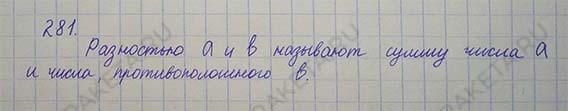 281.
Разностью a и b называют сумму числа a
и числа, противоположного b.